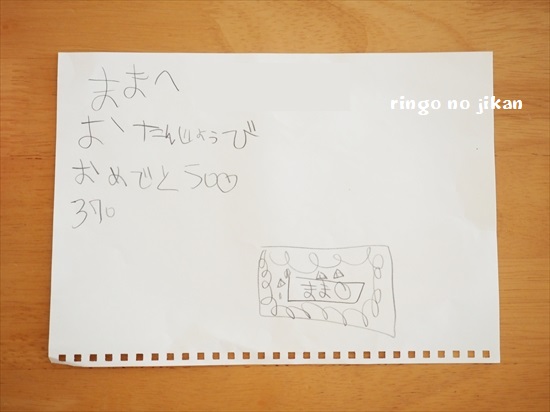 ままへ
おたんじょうび
おめでとう
ringo no jikan
まま